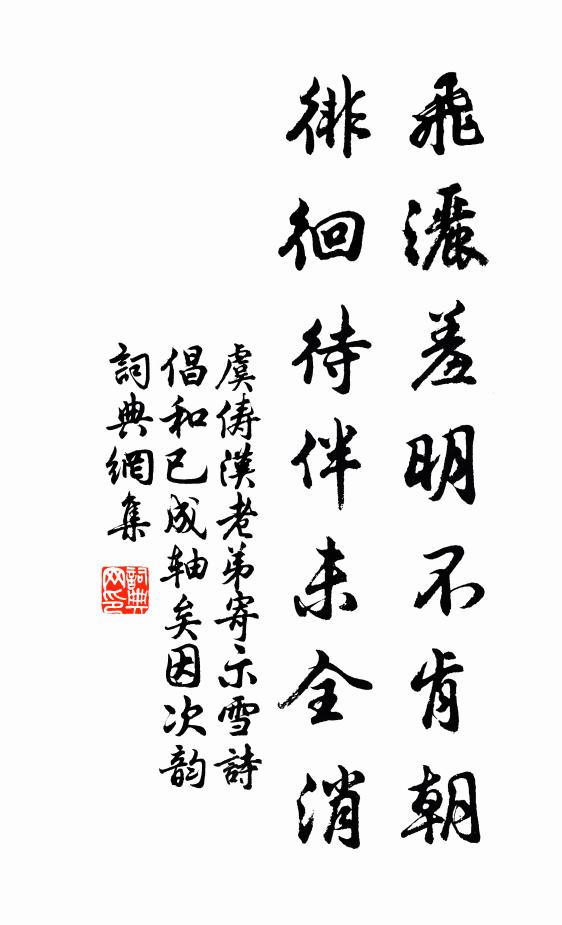 飛灑羞明不肯朝
徘徊待伴未全消
虞儔漢老弟寄示雪詩
倡和已成軸矣因次韵
詞典網集
詞典網印